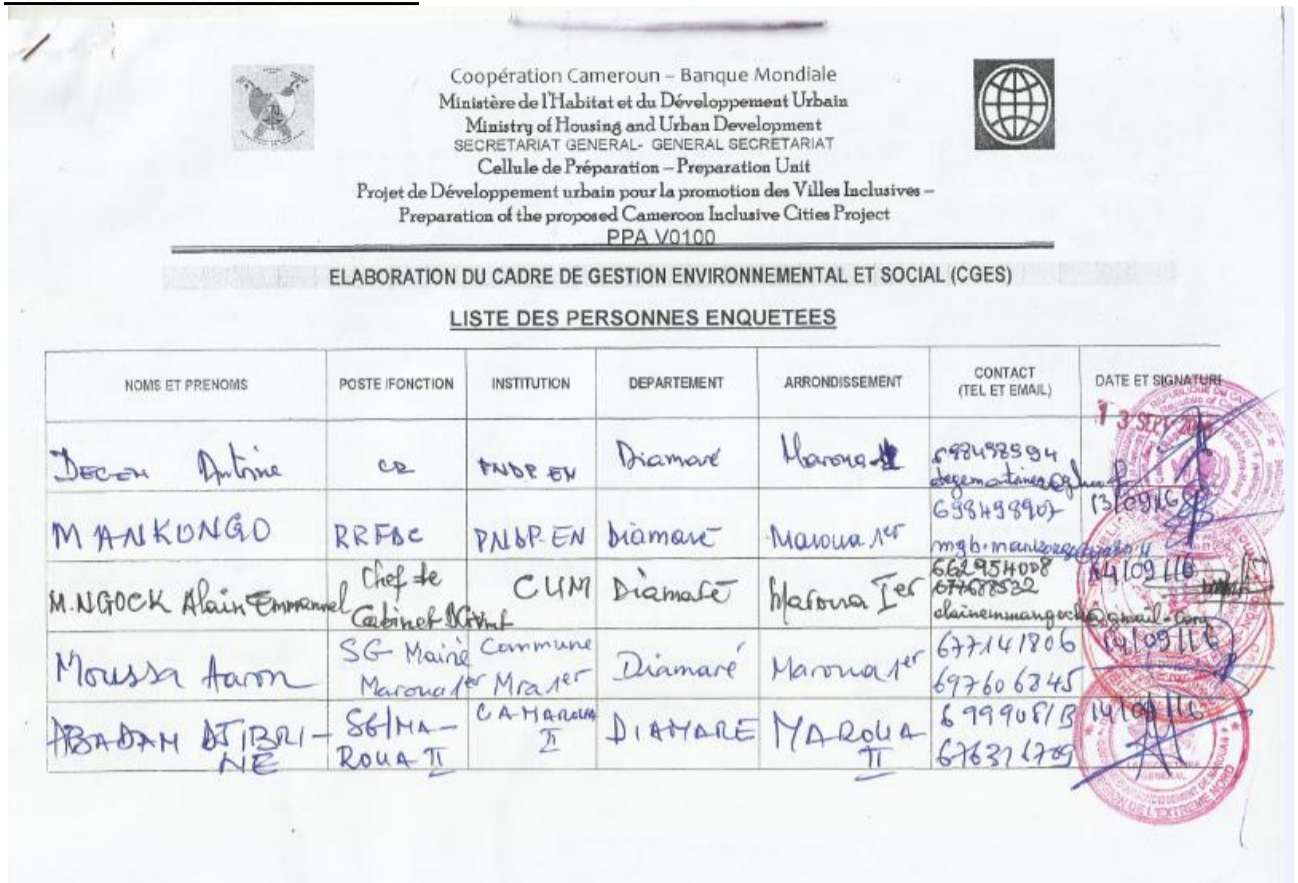 Coopération Cameroun – Banque Mondiale
Ministère de l'Habitat et du Développement Urbain
Ministry of Housing and Urban Development
SECRETARIAT GENERAL- GENERAL SECRETARIAT
Cellule de Préparation – Preparation Unit
Projet de Développement urbain pour la promotion des Villes Inclusives –
Preparation of the proposed Cameroon Inclusive Cities Project
PPA V0100
ELABORATION DU CADRE DE GESTION ENVIRONNEMENTAL ET SOCIAL (CGES)
LISTE DES PERSONNES ENQUETEES
NOMS ET PRENOMS POSTE /FONCTION INSTITUTION DEPARTEMENT ARRONDISSEMENT CONTACT (TEL ET EMAIL) DATE ET SIGNATURE
Antoine PNDP EN Diamaré Maroua 13 SEPT
MANKONGO PNDP-EN Diamaré Maroua 1er 698498907 13/09/16
M.NGOCK Alain Emmanuel Chef de Cabinet CUM Diamaré Maroua Ier 14/09/16
Moussa Aaron SG Mairie Maroua 1er Commune Mra 1er Diamaré Maroua 1er 677141806 697606845 14/09/16
ABADAM DJIBRI-NE SG/MA-ROUA II CA-MAROUA II DIAMARE MAROUA II 14/09/16